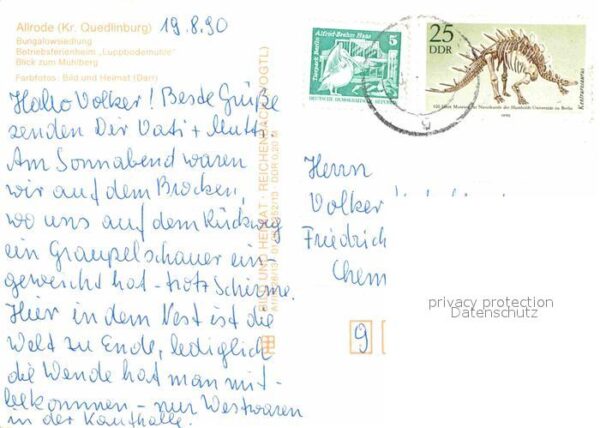 Allrode (Kr. Quedlinburg)
19.8.90
Bungalowsiedlung
Betriebsferienheim „Luppbodemühle"
Blick zum Mühlberg
Farbfotos: Bild und Heimat (Darr)
Hallo Volker! Beste Grüße
senden Dir Vati + Mutti
Am Sonnabend waren
wir auf dem Brocken,
wo uns auf dem Rückweg
ein Graupelschauer ein-
geweicht hat - trotz Schirme.
Hier in dem Nest ist die
Welt zu Ende, lediglich
die Wende hat man mit-
bekommen - nur Westwaren
in der Kaufhalle.
BILD UND HEIMAT · REICHENBACH (VOGTL)
Alfred-Brehm-Haus
Tierpark Berlin
5
DEUTSCHE DEMOKRATISCHE REPUBLIK
25
DDR
Kentrurosaurus
100 Jahre Museum für Naturkunde der Humboldt-Universität zu Berlin
1990
Herrn
Volker
Friedrich
Chem
privacy protection
Datenschutz
9